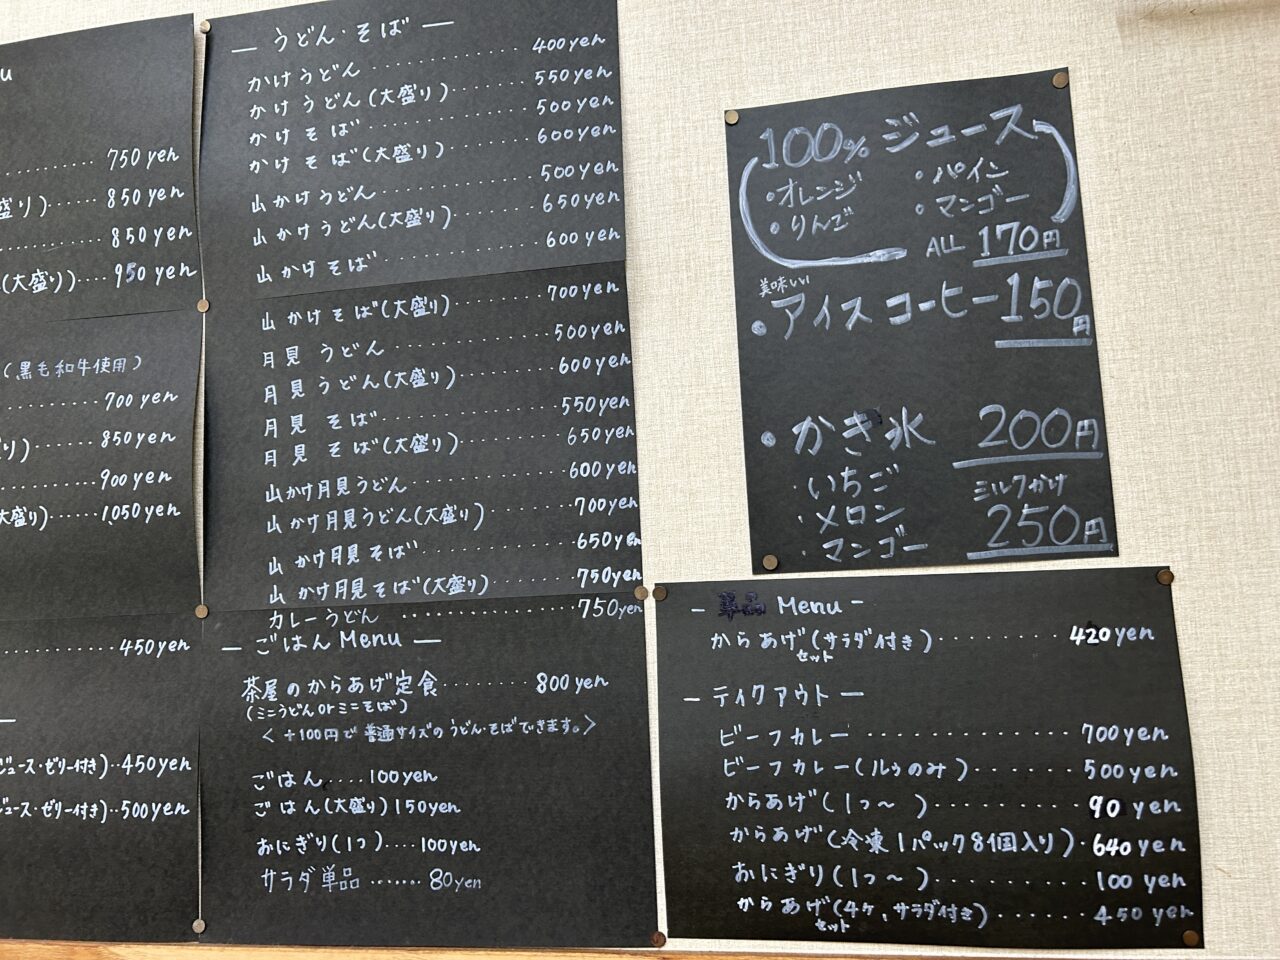 750 yen
盛り)...... 850 yen
850 yen
(大盛り).... 950 yen
(黒毛和牛使用)
700 yen
り) 850 yen
900 yen
大盛り)...... 1,050 yen
450 yen
ジュース・ゼリー付き)..450 yen
ジュース・ゼリー付き)..500 yen
— うどん・そば —
かけうどん 400 yen
かけうどん(大盛り) 550 yen
かけそば 500 yen
かけそば(大盛り) 600 yen
山かけうどん 500 yen
山かけうどん(大盛り) 650 yen
山かけそば 600 yen
山かけそば(大盛り) 700 yen
月見うどん 500 yen
月見うどん(大盛り) 600 yen
月見そば 550 yen
月見そば(大盛り) 650 yen
山かけ月見うどん 600 yen
山かけ月見うどん(大盛り) 700 yen
山かけ月見そば 650 yen
山かけ月見そば(大盛り) 750 yen
カレーうどん 750 yen
— ごはん Menu —
茶屋のからあげ定食 800 yen
(ミニうどん or ミニそば)
<+100円で普通サイズのうどん・そばできます。>
ごはん.... 100 yen
ごはん(大盛り) 150 yen
おにぎり(1つ).... 100 yen
サラダ単品....... 80 yen
100% ジュース
・オレンジ ・パイン
・りんご ・マンゴー
ALL 170円
美味しい
・アイスコーヒー 150円
・かき氷 200円
・いちご ミルクかけ
・メロン 250円
・マンゴー
- 単品 Menu -
からあげセット(サラダ付き) 420 yen
— テイクアウト —
ビーフカレー 700 yen
ビーフカレー(ルゥのみ) 500 yen
からあげ(1つ〜) 90 yen
からあげ(冷凍1パック8個入り) 640 yen
おにぎり(1つ〜) 100 yen
からあげセット(4ケ、サラダ付き) 450 yen